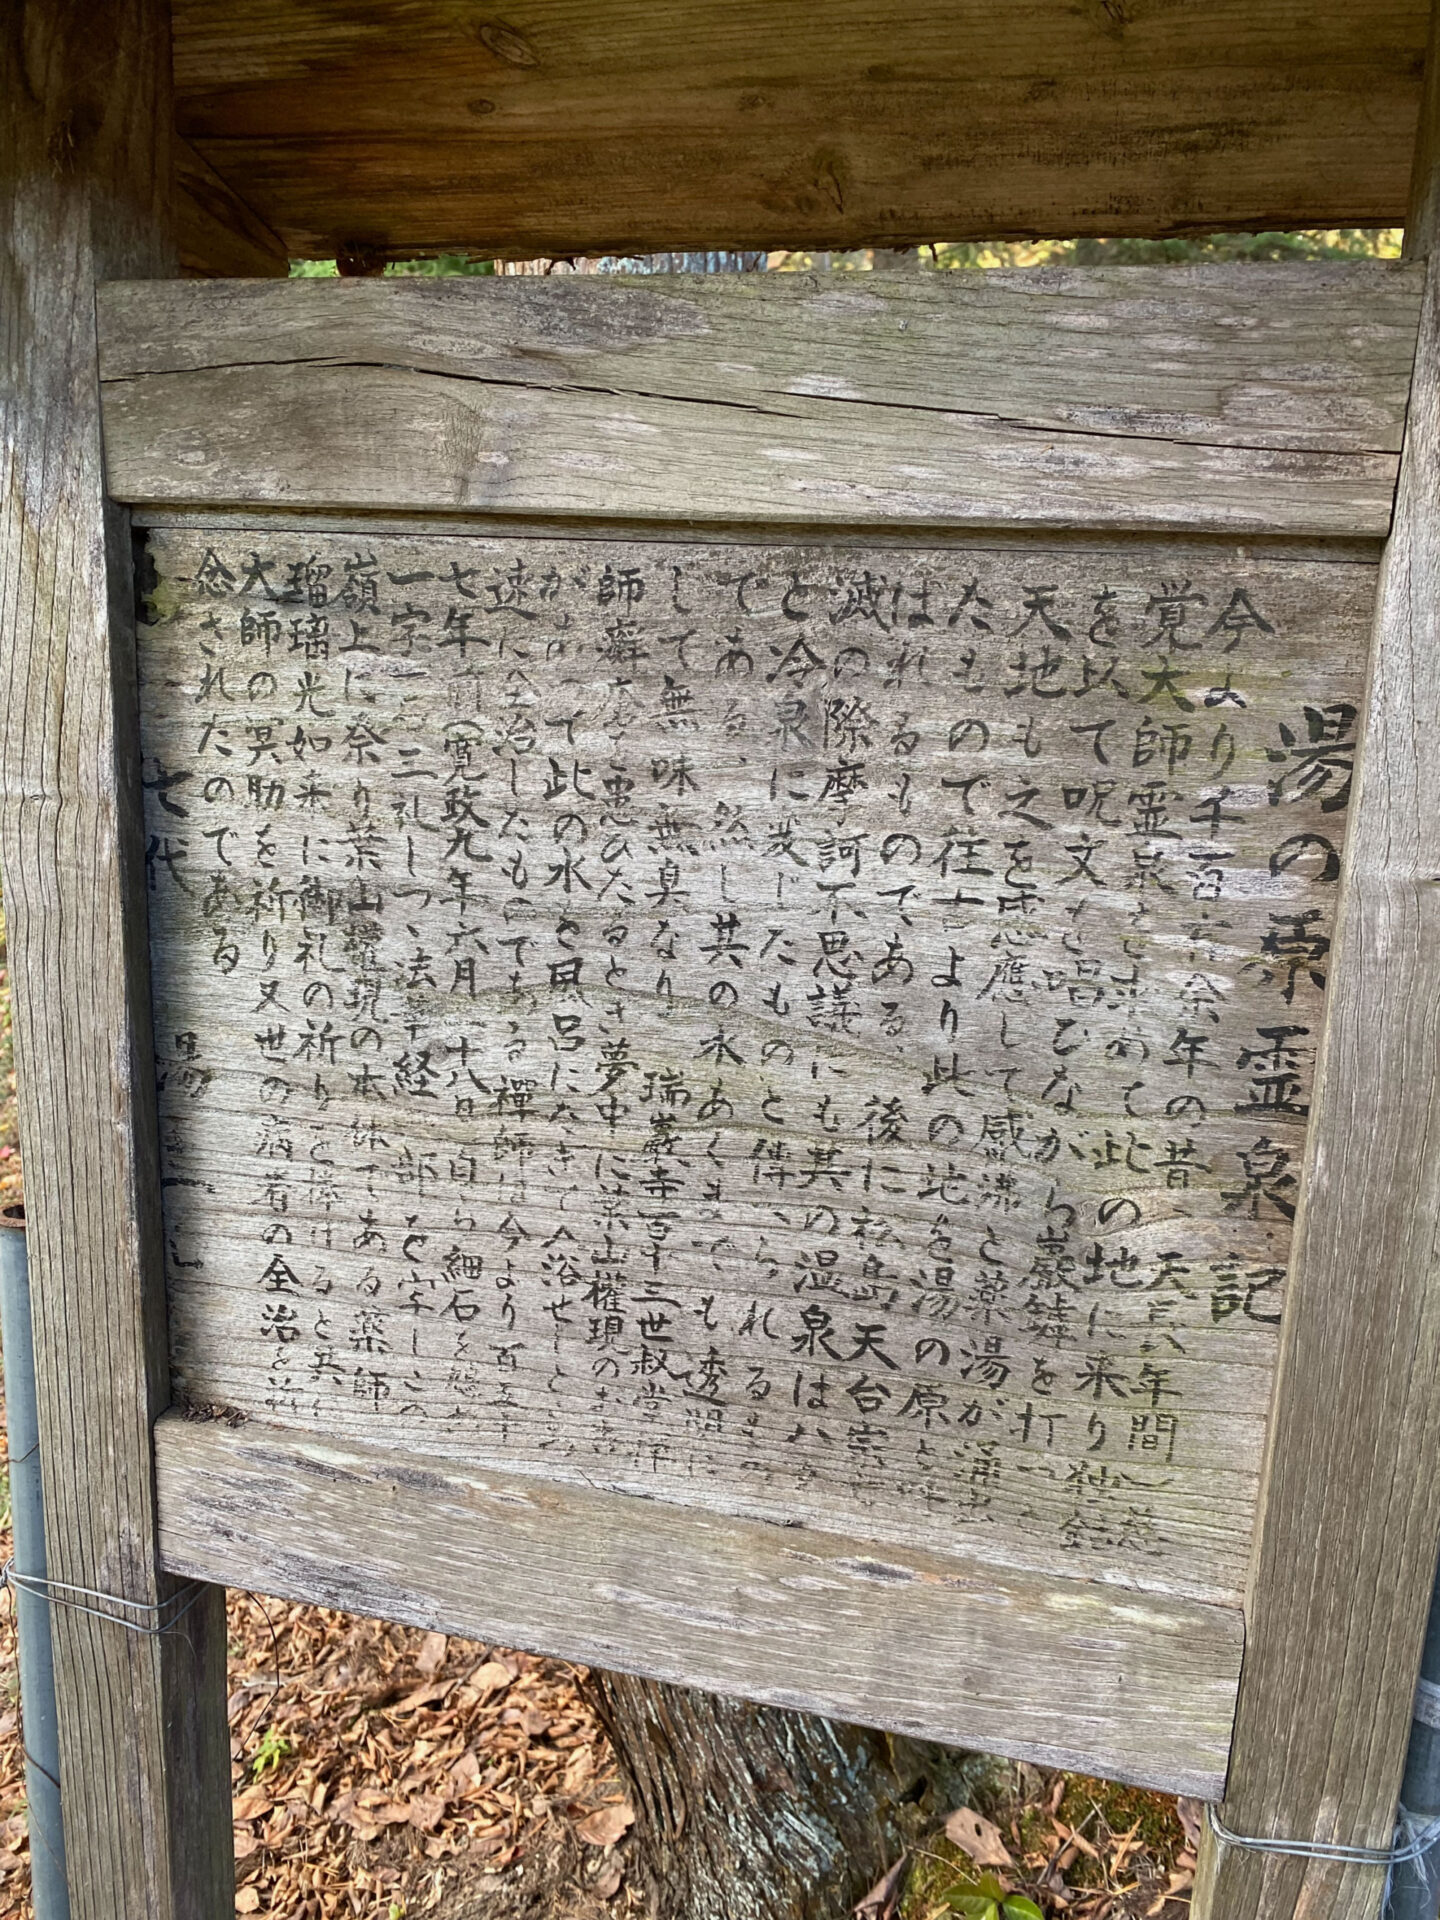 湯の原霊泉記
今より千百有余年の昔、天長年間慈
覚大師霊泉を求めて此の地に来り独鈷
を以て呪文を唱ひながら巌壁を打つ
天地も之を感應して感沸と薬湯が涌出
たもので往古より此の地を湯の原と呼
ばれるものである、後に松島天台宗
滅の際摩訶不思議にも其の温泉は
と冷泉に変じたものと傳へられるもの
である、然し其の水あくまでも透明に
して無味無臭なり 瑞巌寺百十三世叔堂禅
師癬を患ひたるとき夢中に葉山權現のお
があって此の水を風呂にたきて入浴せしところ
速に全治したものである禪師は今より百五十
七年前(寛政九年六月十八日自ら細石を
一字三礼しつゝ法華経一部を写しこの
嶺上に祭り葉山權現の本体である薬師
瑠璃光如来に御礼の祈りを捧げると共に
大師の冥助を祈り又世の病者の全治を祈
念されたのである
七代